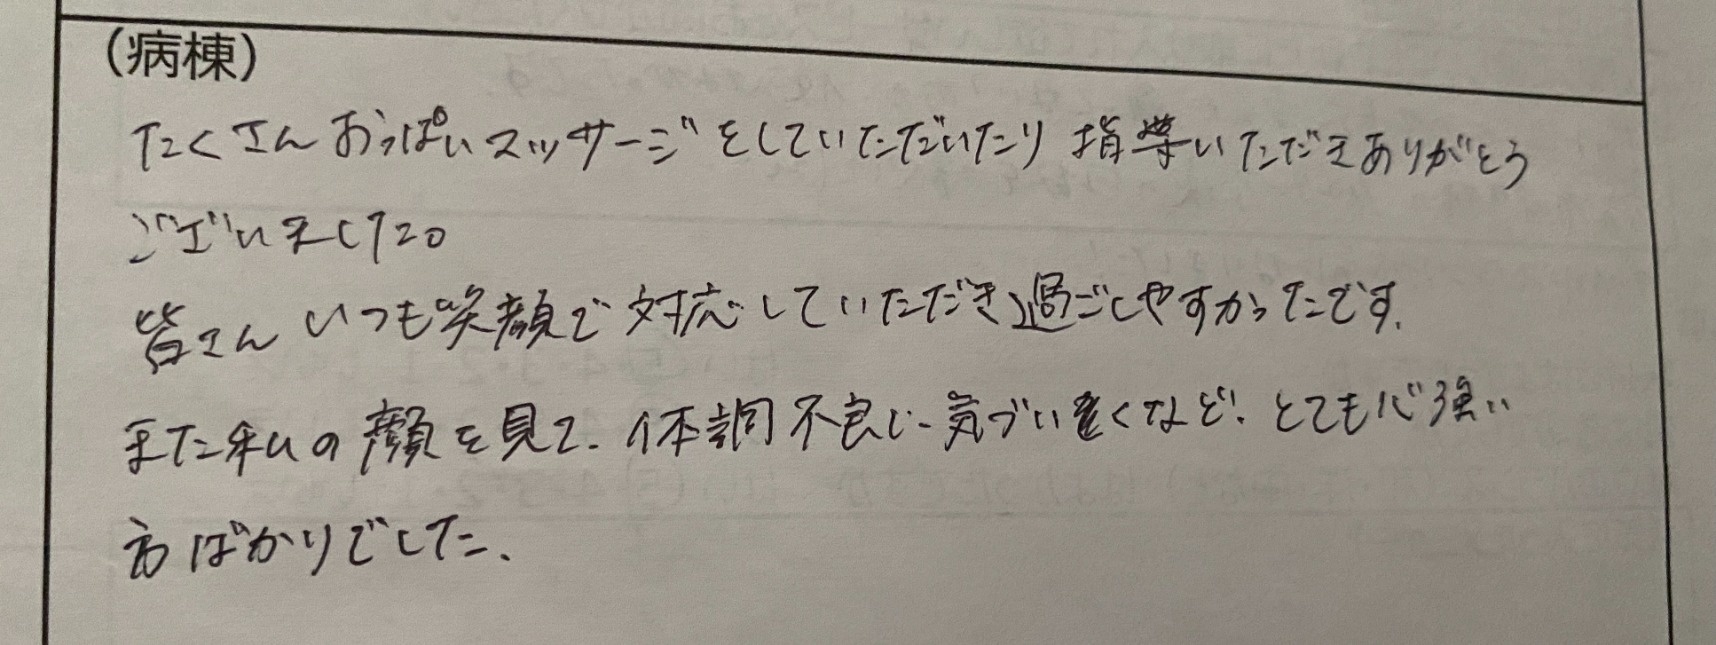 （病棟）
たくさんおっぱいマッサージをしていただいたり 指導いただきありがとう
ございました。
皆さんいつも笑顔で対応していただき過ごしやすかったです.
また私の顔を見て、体調不良に気づい
くなど、とても心強い
方ばかりでした、